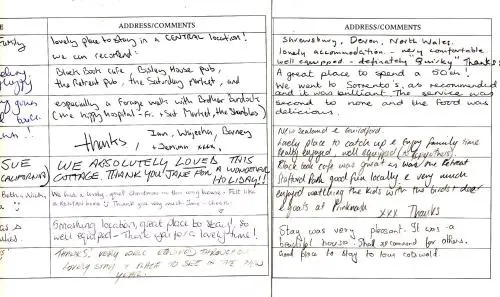 ADDRESS/COMMENTS
family
lovely place to stay in a CENTRAL location!
we can recommend:
Black Book Cafe Bisley House pub,
the Retreat pub, the Saturday market, and
especially a Forage walk with Brother Burdock
thanks,
Jemima xxxx
SUE
CALIFORNIA)
WE ABSOLUTELY LOVED THIS
COTTAGE. THANK YOU JANE FOR A WONDERFUL
HOLIDAY!!
We had a lovely, great Christmas in this cosy house - Felt like
Thank you very much Jane
Something location, great place to stay! So
well equipped - Thank you for a lovely time!
THANKS. VERY WELL EQUIPPED THROUGHOUT
LOVELY STAY & PLACE TO SEE IN THE NEW
YEAR.
ADDRESS/COMMENTS
Shrewsbury, Devon, North Wales.
lovely accommodation - very comfortable
well equipped - definately "quirky" Thanks!
A great place to spend a 50th!
We went to Sorrento's, as recommended
and it was brilliant - service was
second to none and the food was
delicious.
New Zealand & Guildford.
Lovely place to catch up & enjoy family time
really enjoyed. well equipped
Black book cafe was great as was the Retreat
Stratford Park good fun locally & very much
enjoyed watching the kids with the birds & deer
& goats at Prinknash
xxx Thanks
Stay was very pleasant. It was a
beautiful house. Shall recommend for others.
Good place to stay to tour cotswold.